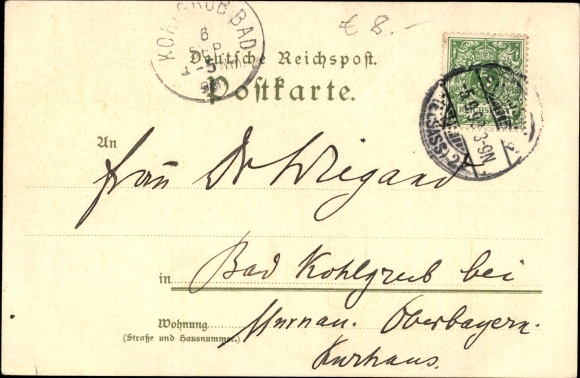 € 8.-
KOHLGRUB BAD
6
SEP
Deutsche Reichspost.
Postkarte.
(ELSASS)
An
Frau Dr Wiegand
in Bad Kohlgrub bei
Wohnung Murnau. Oberbayern.
(Straße und Hausnummer.)
Kurhaus.